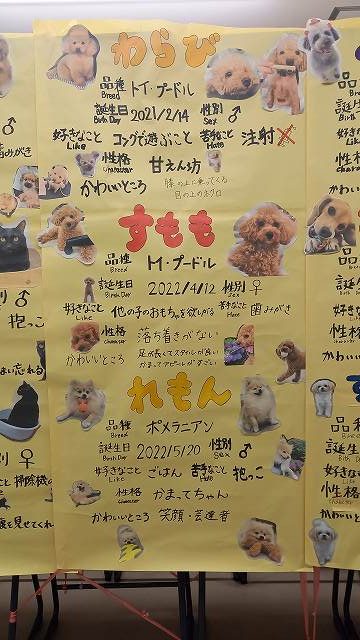 わらび
品種 トイ・プードル
Breed
誕生日 2021/2/14 性別 ♂
Birth Day Sex
好きなこと コングで遊ぶこと 苦手なこと 注射
Like Hate
性格 甘えん坊
Character
かわいいところ 膝の上に乗ってくる
目の上のホクロ
すもも
品種 トイ・プードル
Breed
誕生日 2022/4/12 性別 ♀
Birth Day Sex
好きなこと 他の子のおもちゃを欲しがる 苦手なこと 歯みがき
Like Hate
性格 落ち着きがない
Character
かわいいところ 足が長くてスタイルが良い
かまってアピールがすごい
れもん
品種 ポメラニアン
Breed
誕生日 2022/5/20 性別 ♂
Birth Day Sex
好きなこと ごはん 苦手なこと 抱っこ
Like Hate
性格 かまってちゃん
Character
かわいいところ 笑顔・芸達者